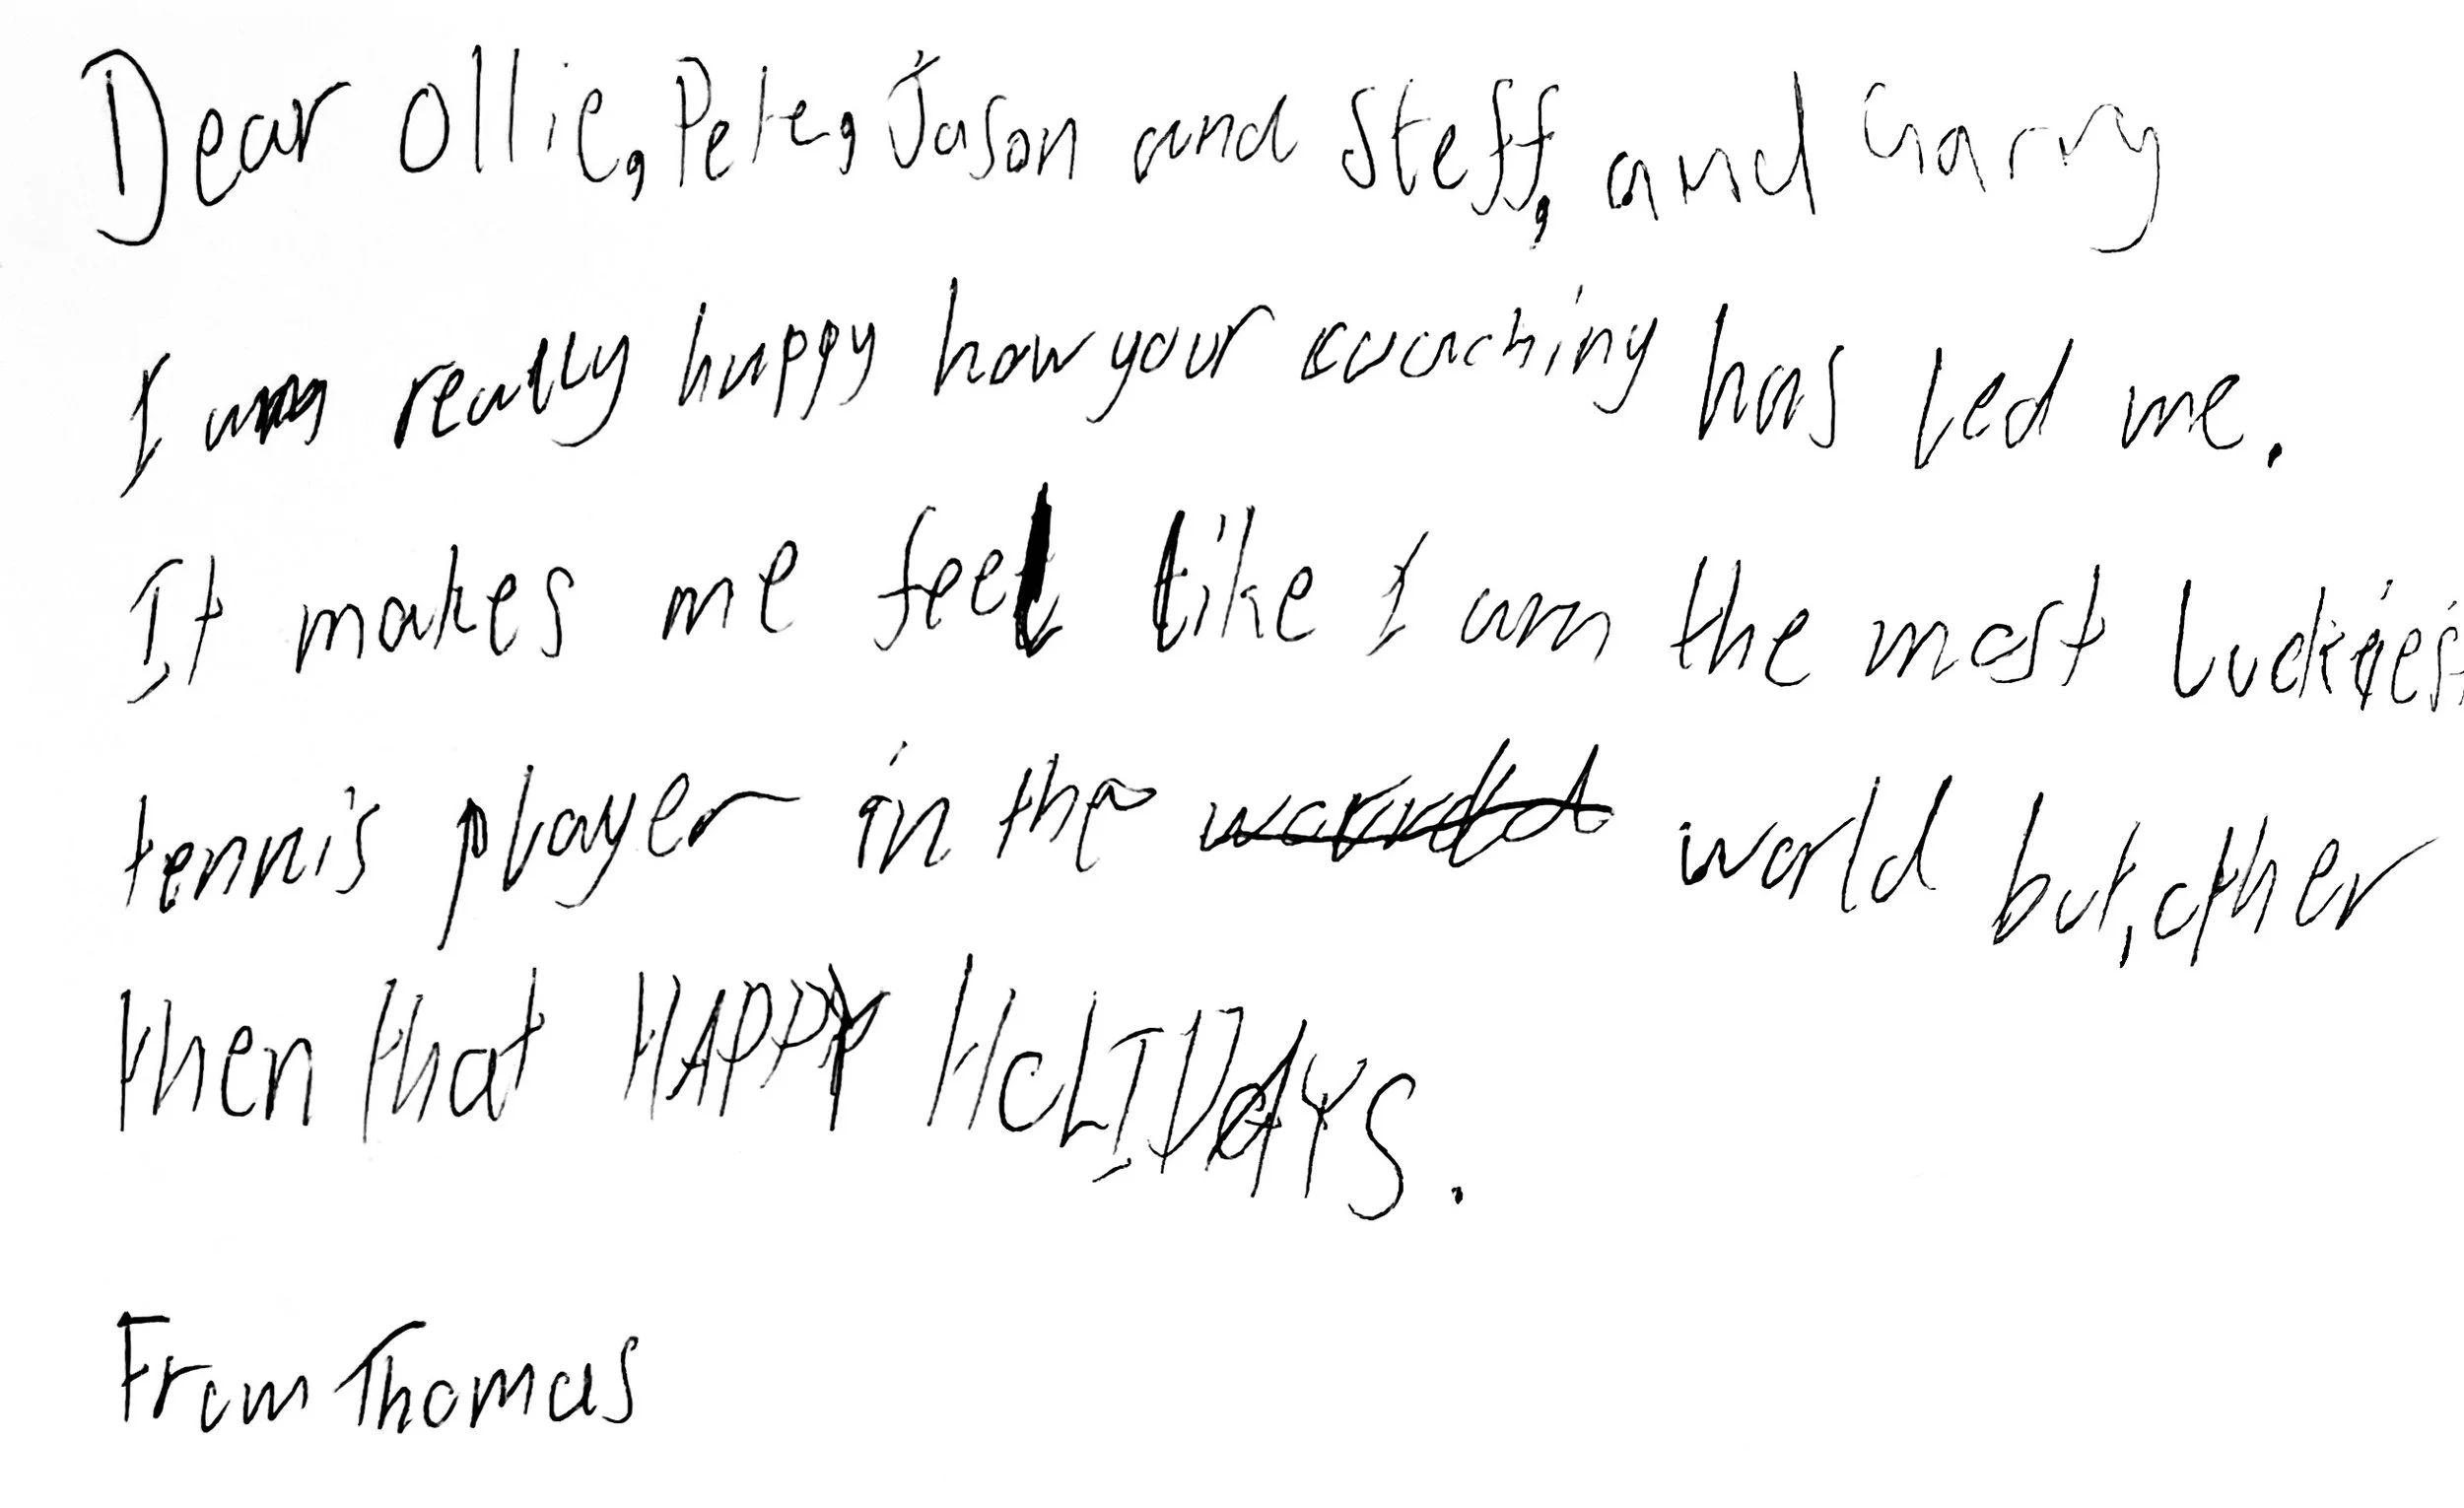 Dear Ollie, Pete, Jason and Steff, and Garry
I am really happy how your coaching has led me.
It makes me feel like I am the most luckies
tennis player in the world but, other
then that HAPPY HOLIDAYS.
From Thomas